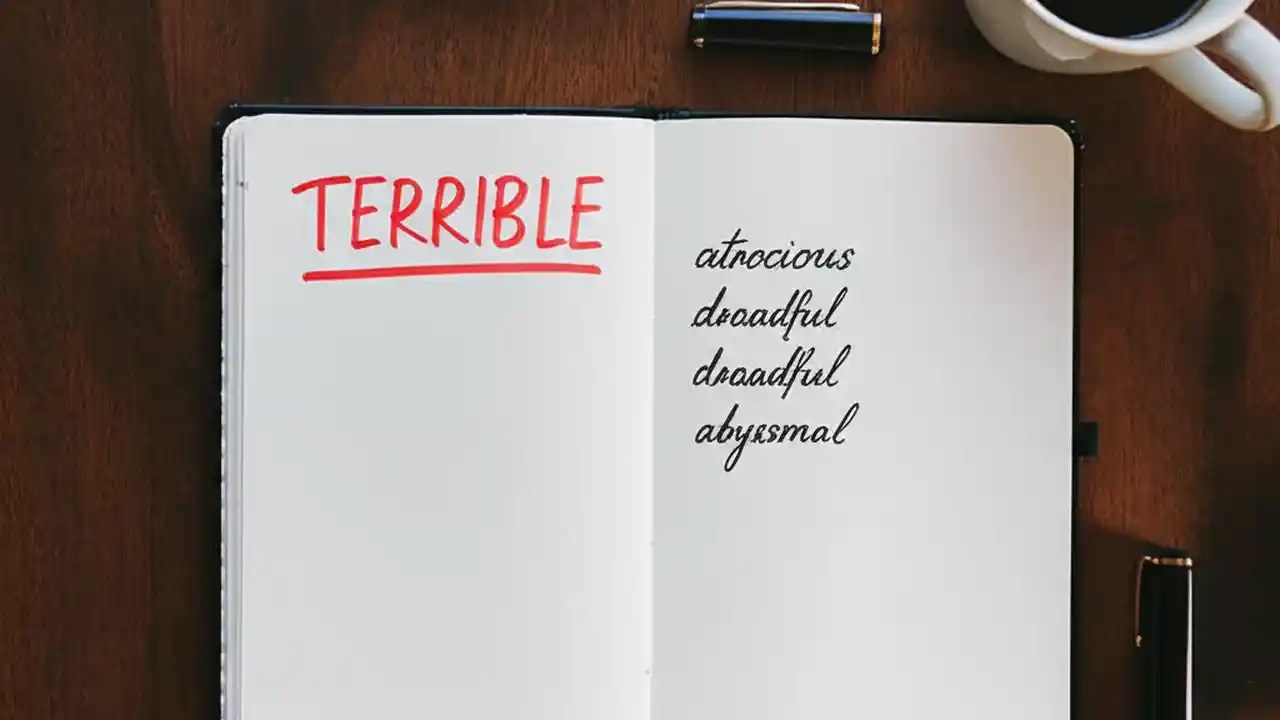 TERRIBLE
atrocious
dreadful
dreadful
abysmal